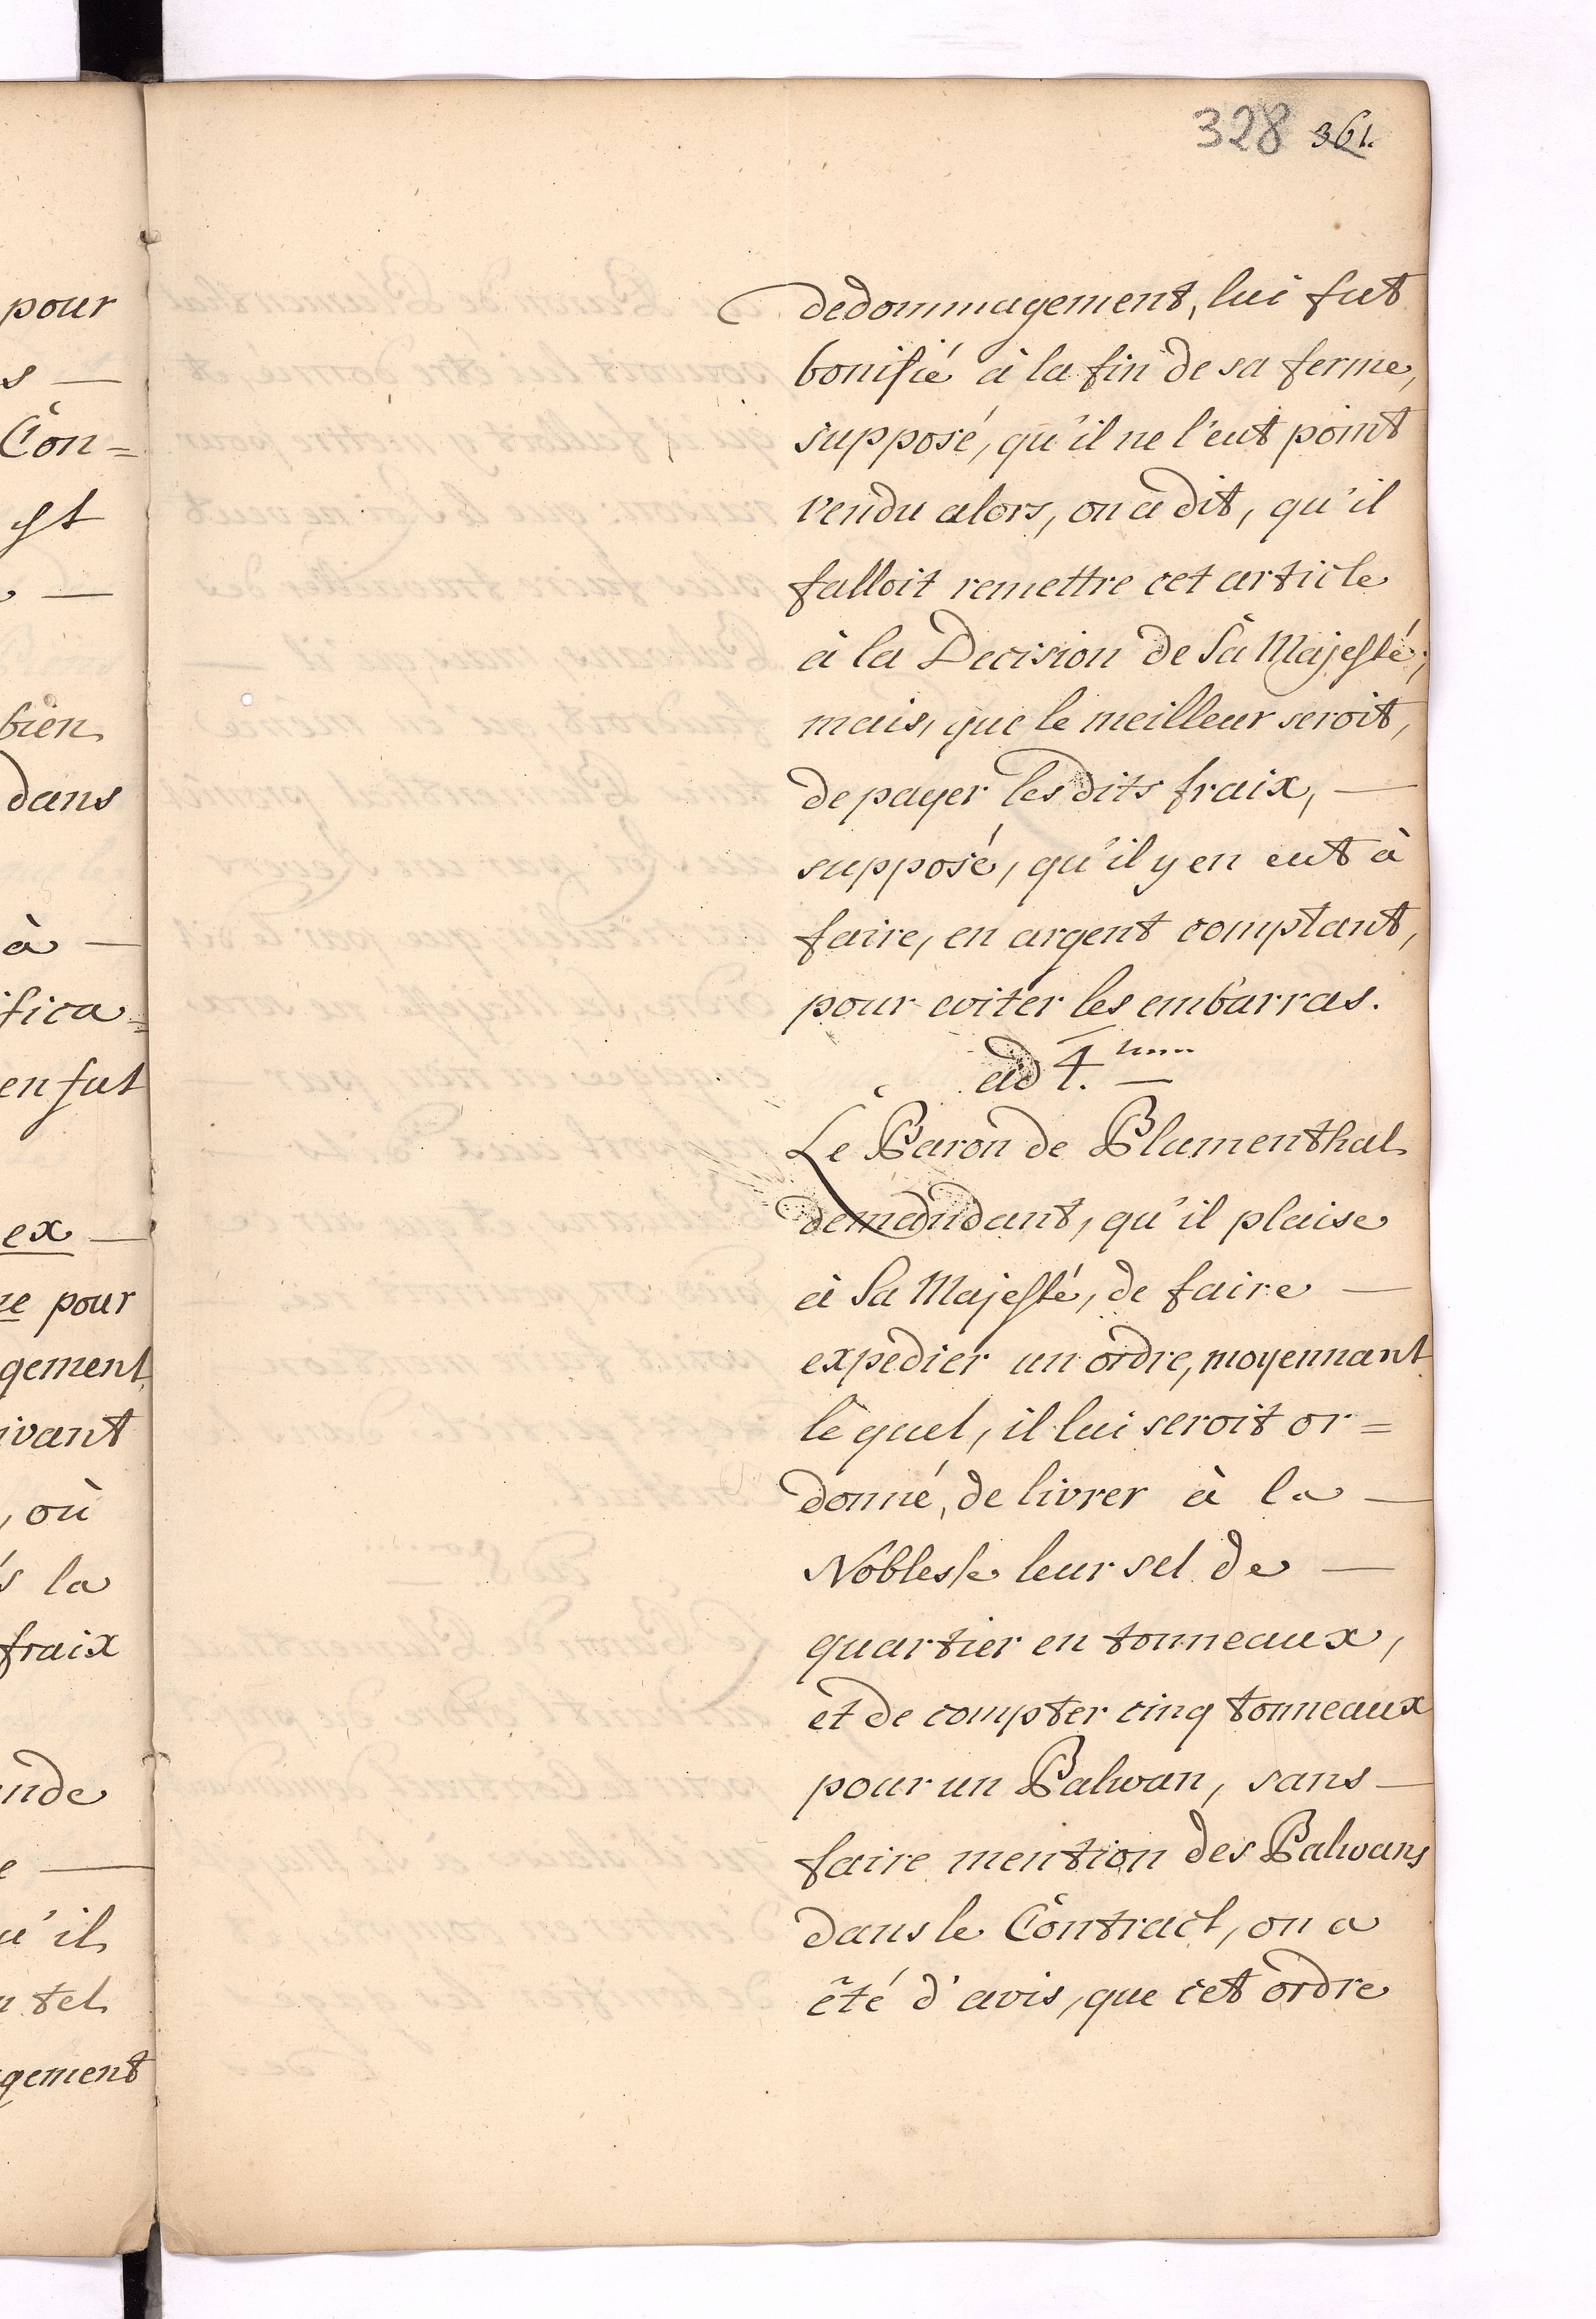 pour
s —
Con=
st
—
bien
dans
à —
ifica=
en fut
ex —
re pour
gement
ivant
, où
s la
fraix
ande
e —
u'il
n tel
gement
328 361.
dedommagement, lui fut
bonifié à la fin de sa ferme,
supposé, qu'il ne l'eut point
vendu alors, on a dit, qu'il
falloit remettre cet article
à la Decision de Sa Majesté;
mais, que le meilleur seroit,
de payer les dits fraix, —
supposé, qu'il y en eut à
faire, en argent comptant,
pour eviter les embarras.
ad 4.tum
Le Baron de Blumenthal
demandant, qu'il plaise
à Sa Majesté, de faire —
expedier un ordre, moyennant
le quel, il lui seroit or=
donné, de livrer à la —
Noblesse leur sel de —
quartier en tonneaux,
et de compter cinq tonneaux
pour un Balwan, sans —
faire mention des Balwans
dans le Contract, on a
été d'avis, que cet ordre